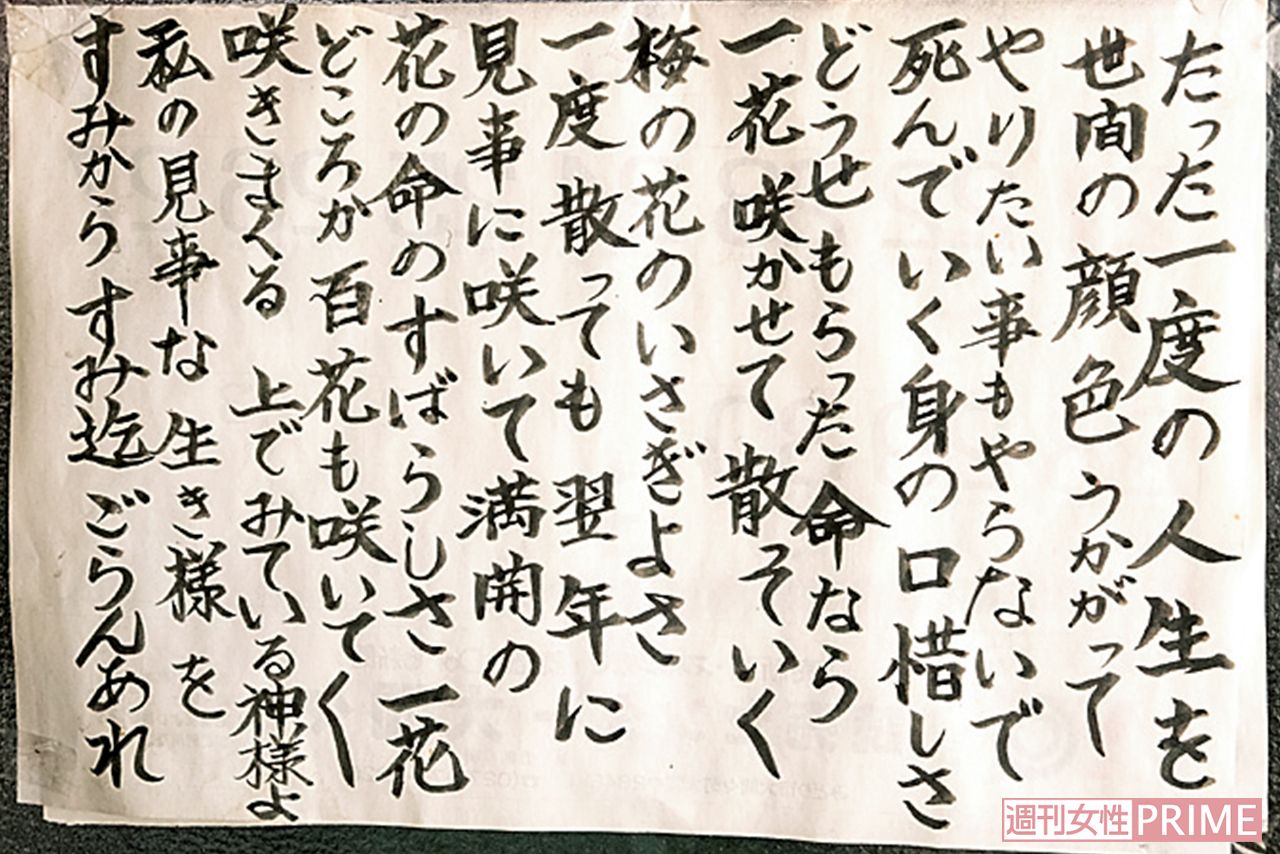 たった一度の人生を
世間の顔色うかがって
やりたい事もやらないで
死んでいく身の口惜しさ
どうせもらった命なら
一花咲かせて散っていく
梅の花のいさぎよさ
一度散っても翌年に
見事に咲いて満開の
花の命のすばらしさ 一花
どころか百花も咲いて
咲きまくる 上でみている神様よ
私の見事な生き様を
すみからすみ迄ごらんあれ
週刊女性PRIME